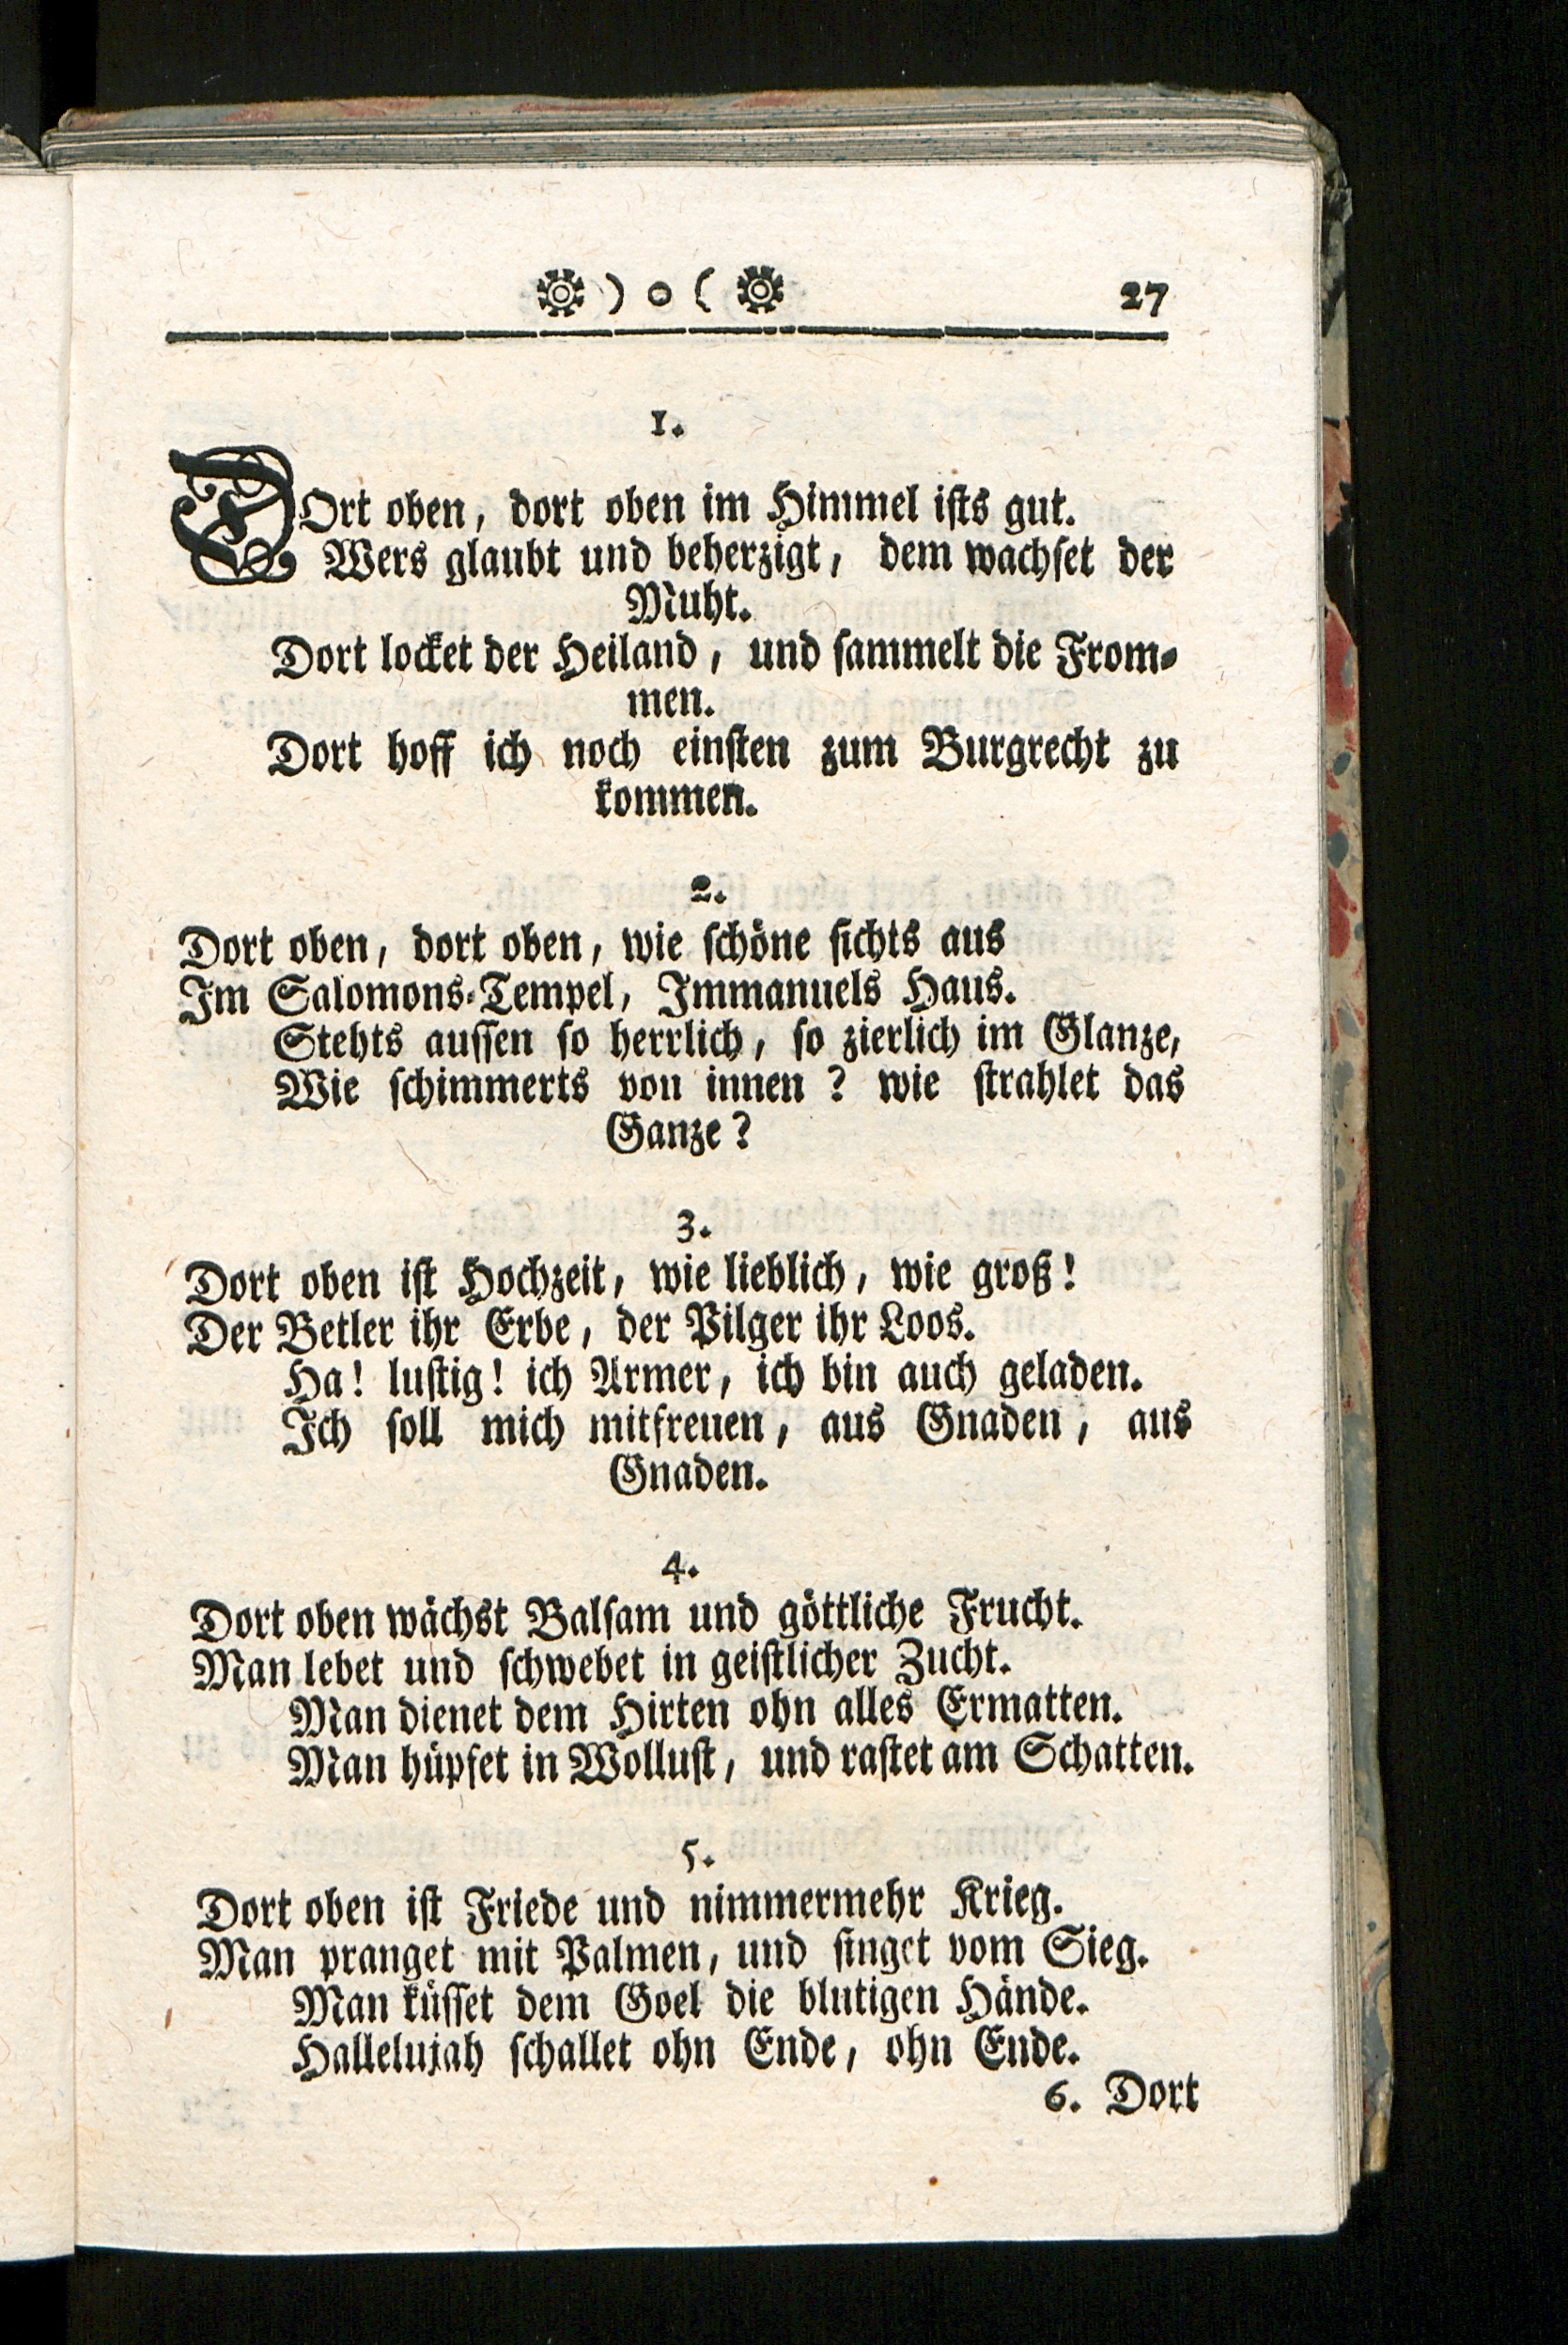 ) o ( 27
1.
DOrt oben, dort oben im Himmel iſts gut.
Wers glaubt und beherzigt, dem wachſet der
Muht.
Dort locket der Heiland, und ſammelt die From-
men.
Dort hoff ich noch einſten zum Burgrecht zu
kommen.
2.
Dort oben, dort oben, wie ſchöne ſichts aus
Im Salomons-Tempel, Immanuels Haus.
Stehts auſſen ſo herrlich, ſo zierlich im Glanze,
Wie ſchimmerts von innen? wie ſtrahlet das
Ganze?
3.
Dort oben iſt Hochzeit, wie lieblich, wie groß!
Der Betler ihr Erbe, der Pilger ihr Loos.
Ha! luſtig! ich Armer, ich bin auch geladen.
Ich ſoll mich mitfreuen, aus Gnaden, aus
Gnaden.
4.
Dort oben wächst Balſam und göttliche Frucht.
Man lebet und ſchwebet in geiſtlicher Zucht.
Man dienet dem Hirten ohn alles Ermatten.
Man hüpfet in Wolluſt, und raſtet am Schatten.
5.
Dort oben iſt Friede und nimmermehr Krieg.
Man pranget mit Palmen, und ſinget vom Sieg.
Man küſſet dem Goel die blutigen Hände.
Hallelujah ſchallet ohn Ende, ohn Ende.
6. Dort